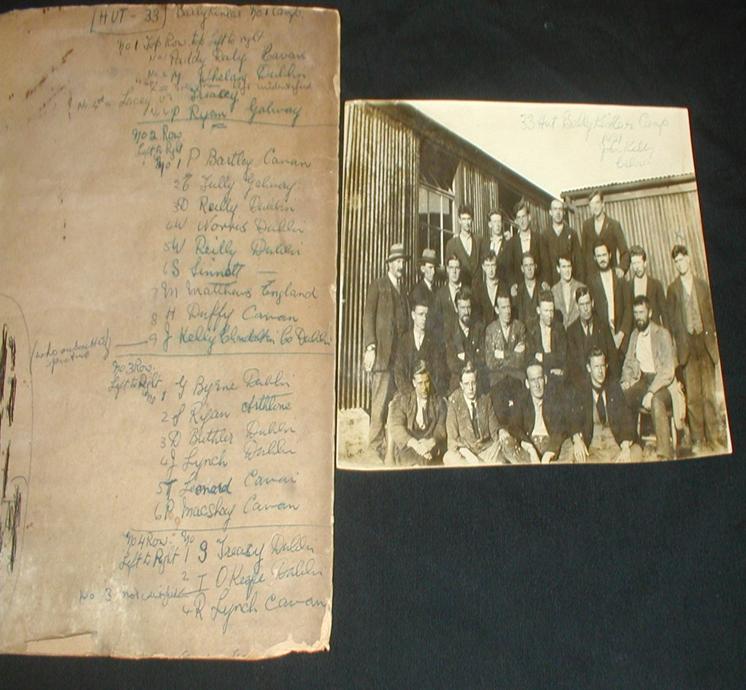 HUT - 33 Ballykinlar No 1 Camp.
No 1 Top Row top left to right
No 1 Paddy Daly Cavan
No 2 M Whelan Dublin
Treacy
No 4th = Lacey
P Ryan Galway
No 2 Row
Left to Right
No 1 P Bartley Cavan
2 Tully Galway
3 D Reilly Dublin
4 W Norris Dublin
5 W Reilly Dublin
6 S Sinnott —
7 M Matthews England
8 H Duffy Cavan
9 J Kelly Clondalkin Co Dublin
(who
No 3 Row
Left to Right
No 1 G Byrne Dublin
2 J Ryan
3 D Buttler Dublin
4 J Lynch Dublin
5 T Leonard Cavan
6 P Cavan
No 4 Row: No
Left to Right 1 J Treacy Dublin
2 T O Keefe Dublin
No 3 not identified
4 R Lynch Cavan
33 Hut Ballykinlar Camp
1921
John Kelly